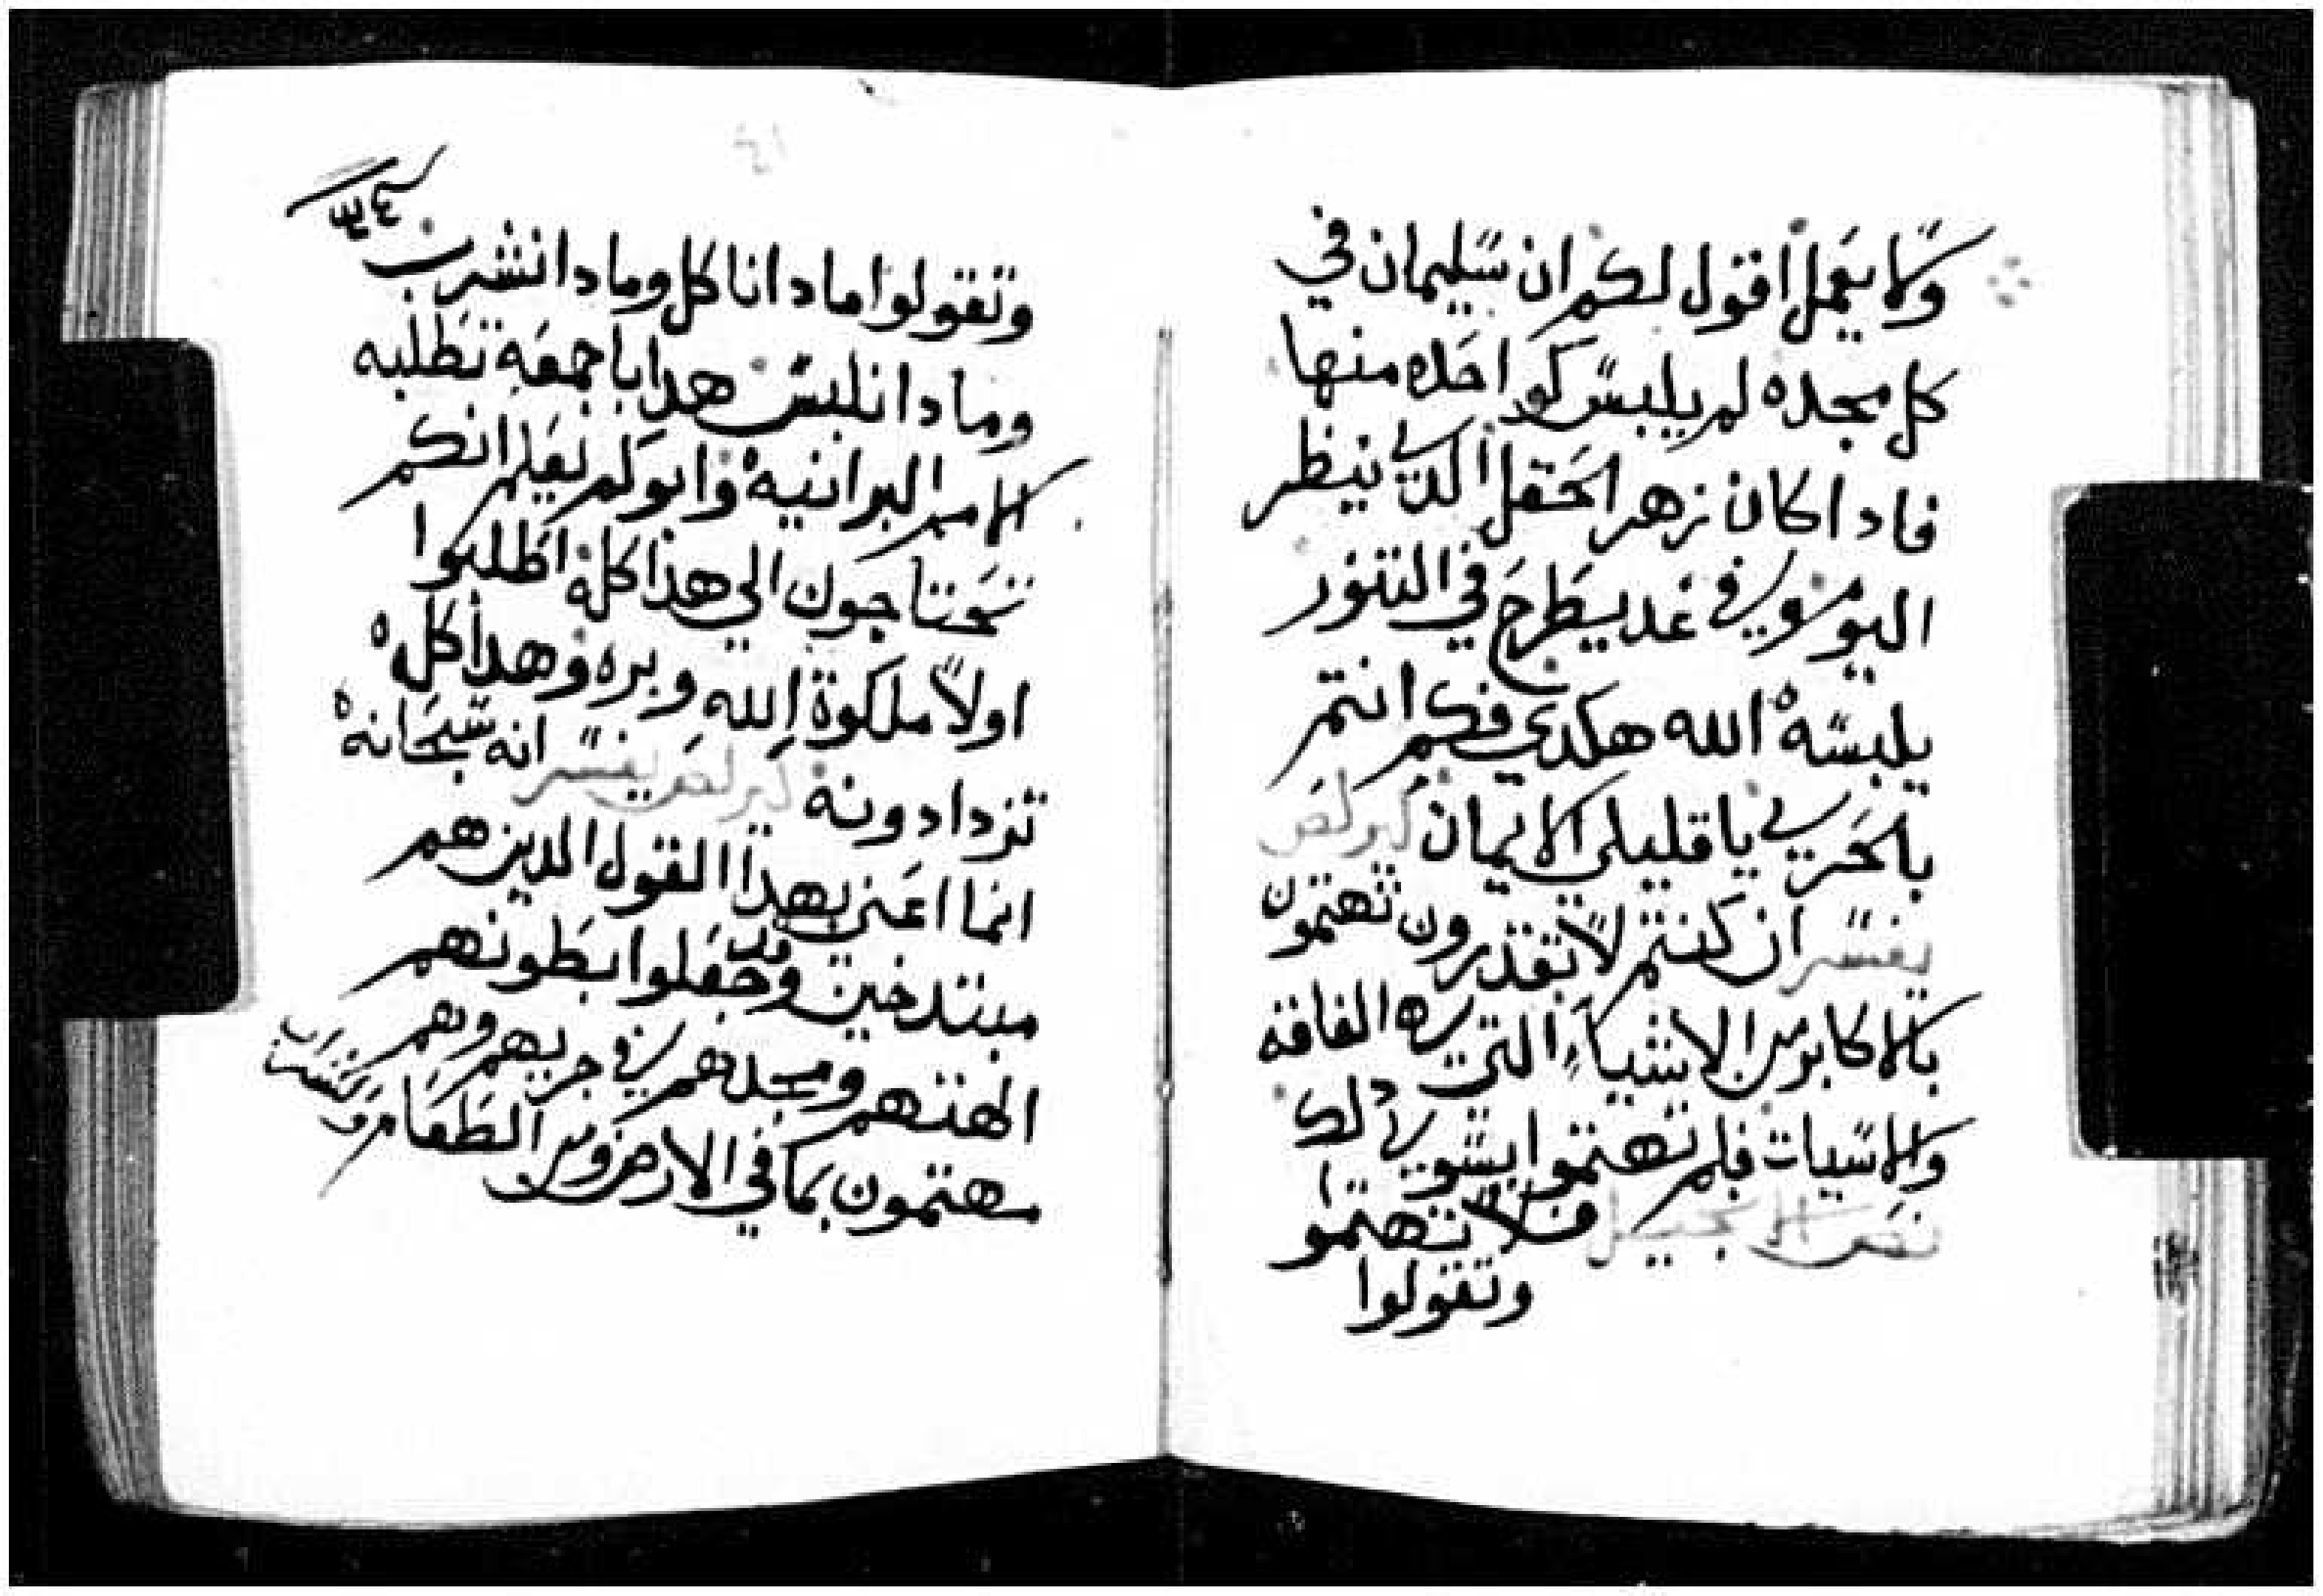 ولا يعمل اقول لكم ان سليمان في
كل مجده لم يلبس كواحده منها
فاد اكان زهر الحقل الدي ينظر
اليوم وفي غد يطرح في التنور
يلبسه الله هكدي فكم انتم
بالحري يا قليلي الايمان كيرلص
يفسر ان كنتم لا تقدرون تهتمون
بالاكابر من الاشياء التي بره الفاقه
والاسيات فلم تهتموا بسوي دلك
نص الانجيل فلا تهتموا
وتقولوا
٣٤
وتقولوا مادا ناكل ومادا نشرب
ومادا نلبس هدا باجمعه تطلبه
الامم البرانيه وابوكم يعلم انكم
تحتاجون الي هذا كله اطلبوا
اولاً ملكوة الله وبره وهدا كله
تزدادونه كيرلص يفسر انه سبحانه
انما اعني بهدا القول الدين هم
مبتدخين وقد جعلوا بطونهم
الهتهم ومجدهم في خزيهم وهم
مهتمون بما في الارض ومن الطعام